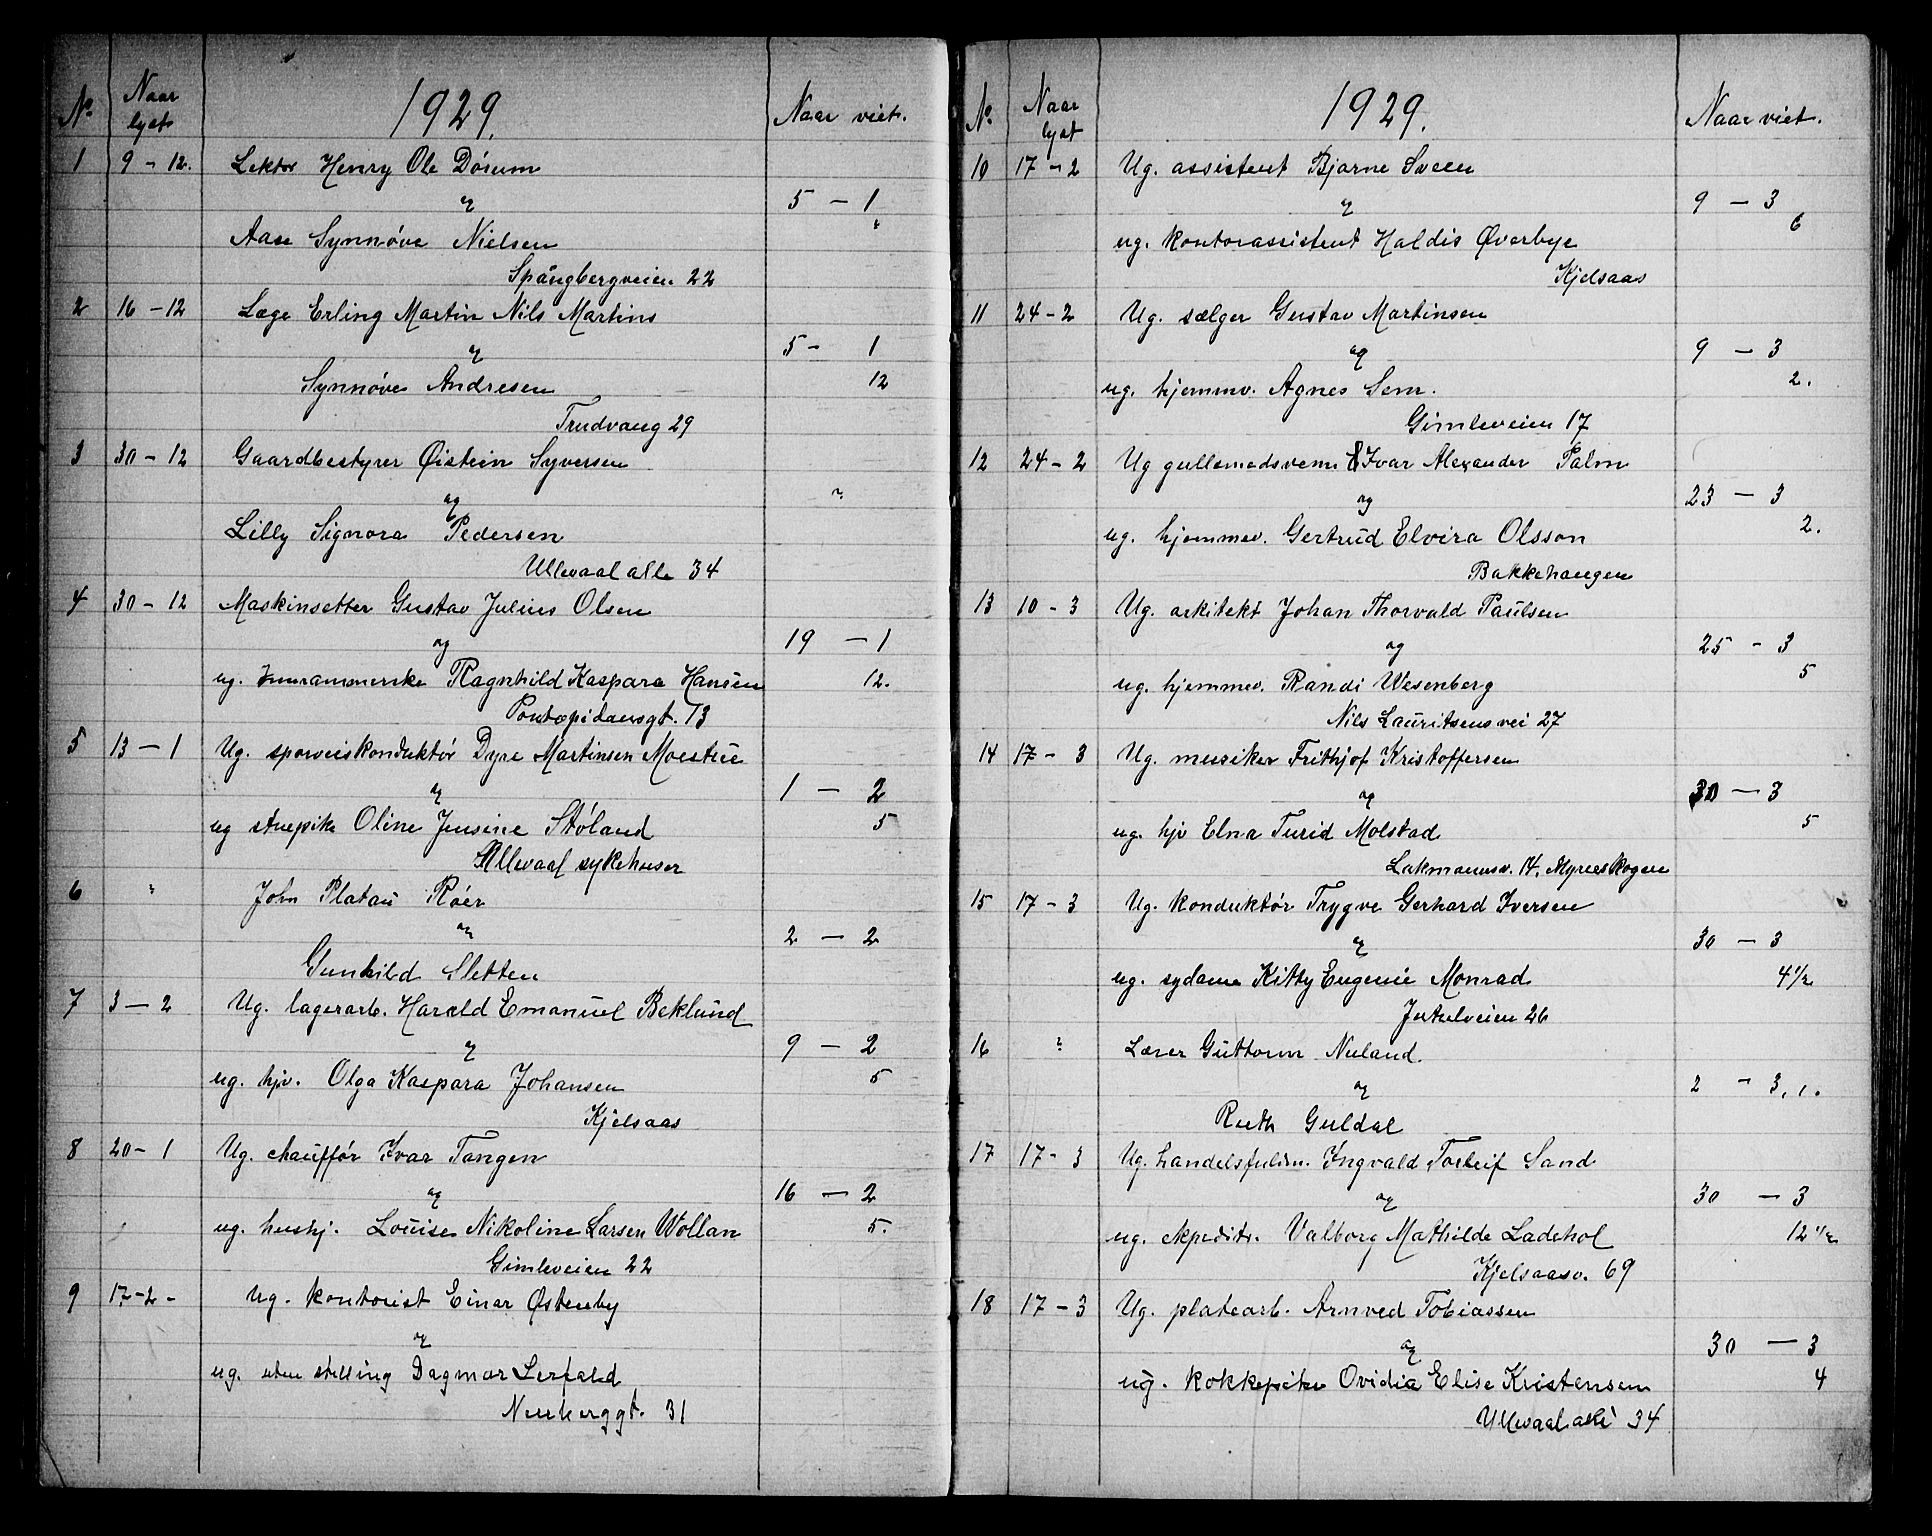 1929.
No Naar lyst Naar viet.
1 9 - 12. Lektor Henry Ole Dórum
og 5 - 1
Aase Synnóve Nielsen
Spångbergveien 22
2 16 - 12 Læge Erling Martin Nils Martins
og 5 - 1
Synnóve Andresen 12
Trudvang 29
3 30 - 12 Gaardbestyrer Øistein Syversen
og ?
Lilly Signora Pedersen
Ullevaal alle 34
4 30 - 12 Maskinsetter Gustav Julius Olsen
og 19 - 1
ug. Innrammerske Ragnhild Kaspara Hansen 12.
Pontopidansgt. 13
5 13 - 1 Ug. sporveiskonduktór Dyre Martinsen Moestue
og 1 - 2
ug stuepike Oline Jensine Stóland 5
Ullevaal sykehuser
6 ? John Platau Róer
og 2 - 2
Gunhild Sletten
7 3 - 2 Ug. lagerarb. Harald Emanuel Beklund
og 9 - 2
ug. hjv. Olga Kaspara Johansen 5
Kjelsaas
8 20 - 1 Ug. chauffór Ivar Tangen
og 16 - 2
ug. hushj. Louise Nikoline Larsen Wollan 5.
Gimleveien 22
9 17 - 2 - Ug. kontorist Einar Østenby
og
ug. uten stilling Dagmar Lerfald
31
1929.
No. Naar lyst Naar viet.
10 17 - 2 Ug. assistent Bjarne Sveen
og 9 - 3
ug. kontorassistent Haldis Øverbye 6
Kjelsaas
11 24 - 2 Ug. sælger Gustav Martinsen
og 9 - 3
ug. hjemmv. Agnes Sem. 2.
Gimleveien 17
12 24 - 2 Ug gullsmedsvenn Ivar Alexander Palm
og 23 - 3
ug. hjemmev. Gertrud Elvira Olsson 2.
Bakkehaugen
13 10 - 3 Ug. arkitekt Johan Thorvald Paulsen
og 25 - 3
ug. hjemmev. Randi Wesenberg 5
Nils Lauritsensvei 27
14 17 - 3 Ug. musiker Frithjof Kristoffersen
og 30 - 3
ug. hjv Elna Turid Molstad 5
Lakmannsv. 14, Myrerskogen
15 17 - 3 Ug. konduktór Trygve Gerhard Iversen
og 30 - 3
ug. sydame Kitty Eugenie Monrad 4 1/2
Jutulveien 26
16 ? Lærer Guttorm Nuland.
og 2 - 3, 1.
Ruth Guldal
17 17 - 3 Ug. handelsfuldm. Ingvald Torleif Sand
og 30 - 3
ug. ekspeditr. Valborg Mathilde Ladehol 12 1/2
Kjelsaasv. 69
18 17 - 3 Ug. platearb. Arnved Tobiassen
og 30 - 3
ug. kokkepike Ovidia Elise Kristensen 4
Ullevaal alle 34